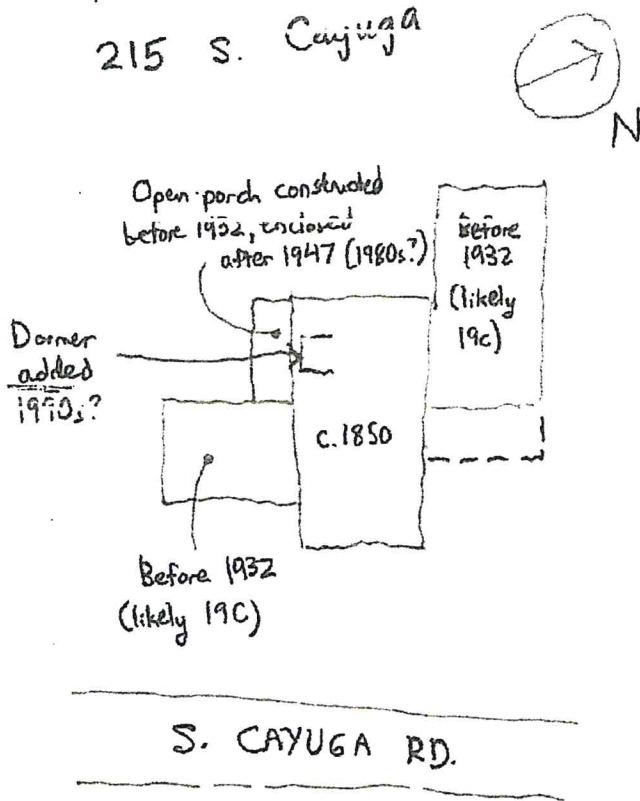 215 S. Cayuga
N
Open porch constructed
before 1932, enclosed
after 1947 (1980s?)
before
1932
(likely
19c)
Dormer
added
1990s?
c.1850
Before 1932
(likely 19C)
S. CAYUGA RD.